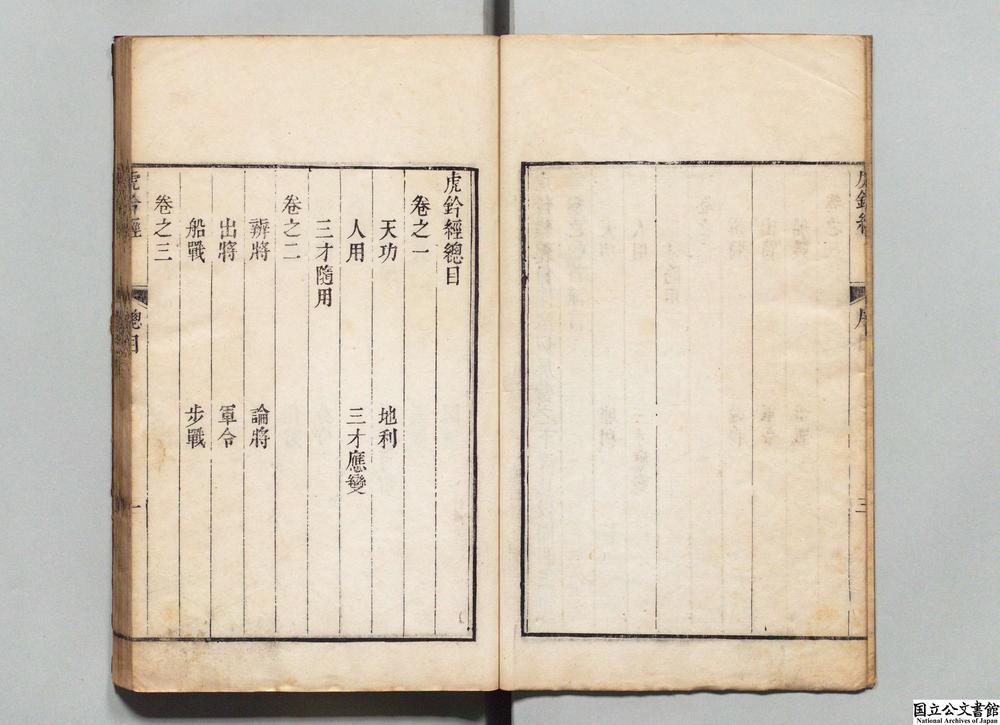 虎鈐經總目
卷之一
天功 地利
人用 三才應變
三才隨用
卷之二
辨將 論將
出將 軍令
船戰 步戰
卷之三
虎鈐經 總目 一
三
国立公文書館
National Archives of Japan